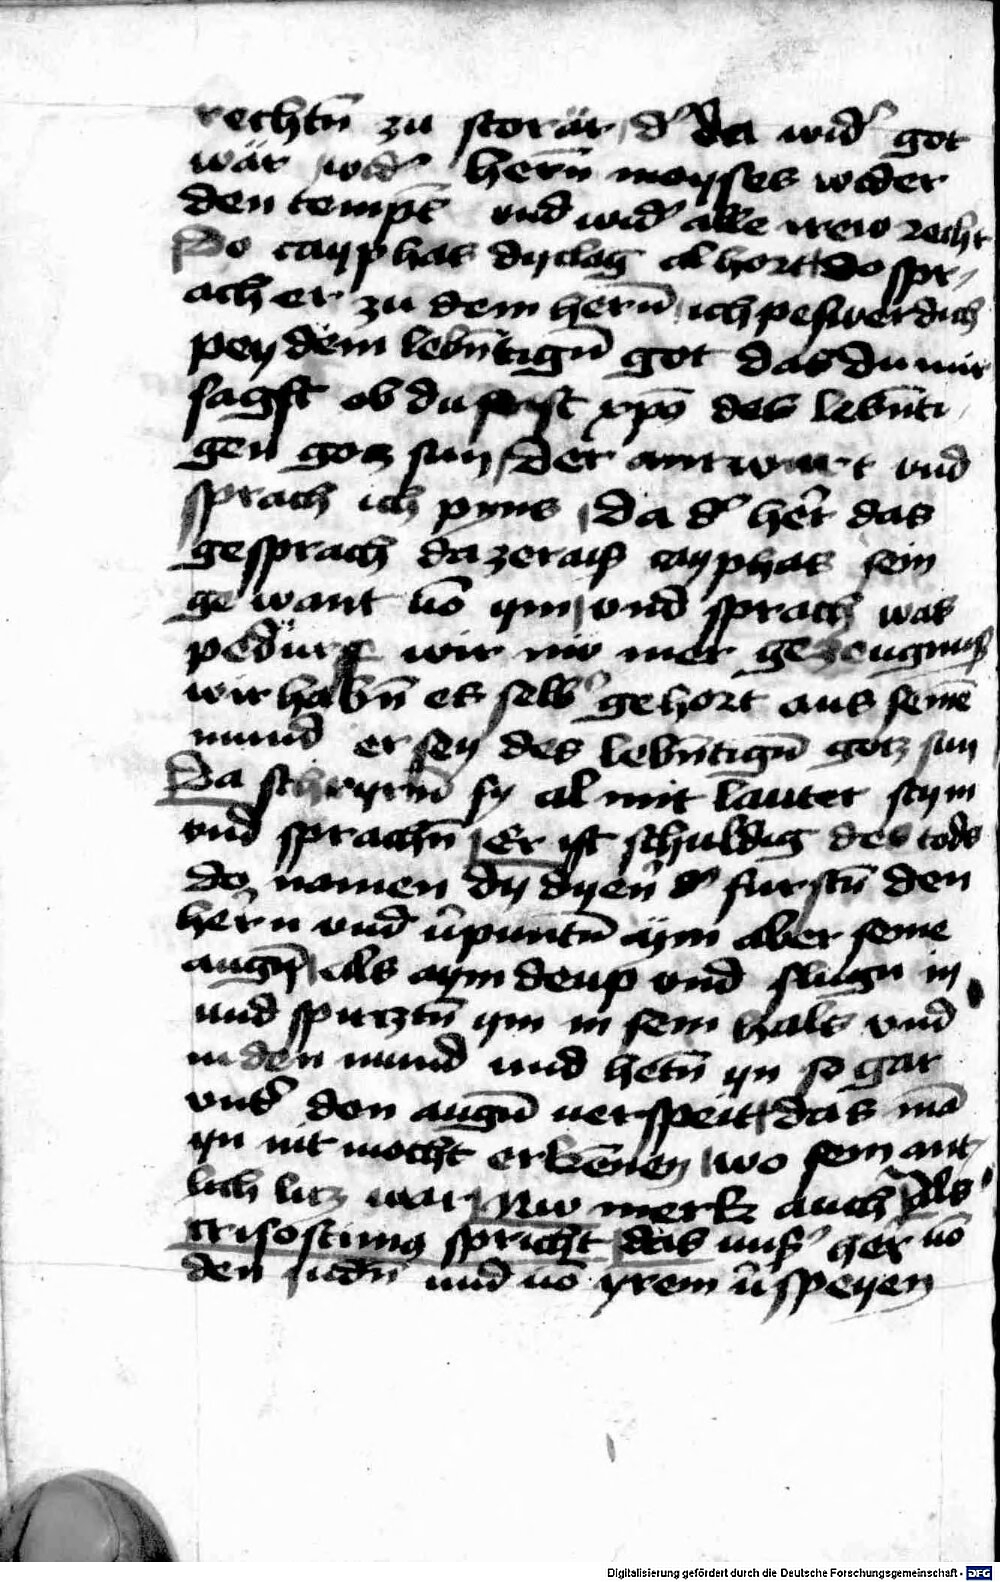 rechtn̄ zu storär / d' da wid' got
wär / wid' hern̄ moyses wider
den tempel vnd wid' alle irew recht
Do cayphas dy clag al hort / do spr-
ach er zu dem hern̄ / ich peswer dich
pey dem lebn̄tign̄ got das du mir
sagst ob du seist xp̄s des lebn̄ti-
gen gotz sun / der antwurt vnd
sprach ich pyns / Da d' her das
gesprach da zeraiß cayphas sein
gewant vō ym / vnd sprach was
pedurf wir nw mer gezeugnuß
wir habn̄ es selb' gehort aus seinē
mund er sey des lebn̄tign̄ gotz sun
Da schryrn̄ sy al mit lauter stym
vnd sprachn̄ / Er ist schuldig des tods
do namen dy dyen̄ d' furstn̄ den
hern vnd v̄puntn̄ ym aber seine
augn̄ / als aym deup vnd slugn in
vnd spirztn̄ ym in sein hals vnd
in den mund vnd hetn̄ yn so gar
vnt' den augn̄ verspeit / das mā
yn nit mocht erkēnen / wo sein ant-
lich litz war / Nw merk auch / Als
crisostimus spricht / das vnß' her vō
den judn̄ vnd vō yrem v̄speyen
Digitalisierung gefördert durch die Deutsche Forschungsgemeinschaft - DFG